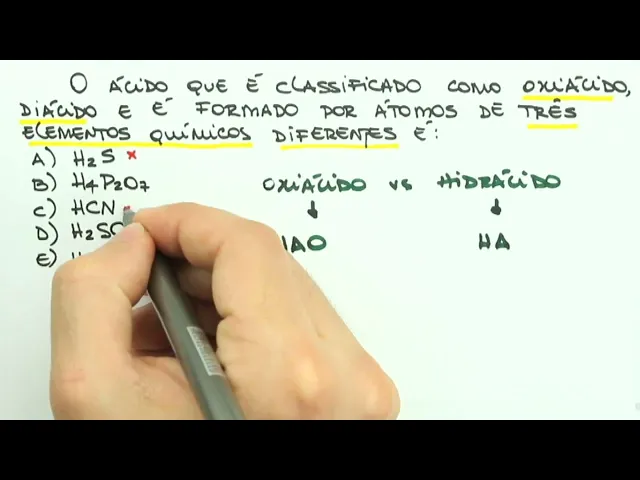 O ÁCIDO QUE É CLASSIFICADO COMO OXIÁCIDO,
DIÁCIDO E É FORMADO POR ÁTOMOS DE TRÊS
ELEMENTOS QUÍMICOS DIFERENTES É:
A) H2S ×
B) H4P2O7
C) HCN
D) H2SO
E) H
OXIÁCIDO VS HIDRÁCIDO
HAO HA